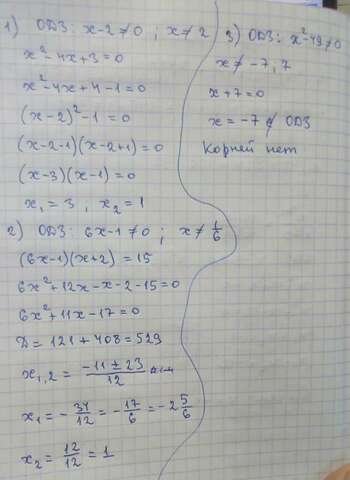 1) ОДЗ: x-2≠0 ; x≠2
x²-4x+3=0
x²-4x+4-1=0
(x-2)²-1=0
(x-2-1)(x-2+1)=0
(x-3)(x-1)=0
x₁=3, x₂=1
2) ОДЗ: 6x-1≠0 ; x≠1/6
(6x-1)(x+2)=15
6x²+12x-x-2-15=0
6x²+11x-17=0
D=121+408=529
x₁,₂=(-11±23)/12
x₁=-34/12=-17/6=-2 5/6
x₂=12/12=1
3) ОДЗ: x²-49≠0
x≠-7,7
x+7=0
x=-7∉ОДЗ
Корней нет